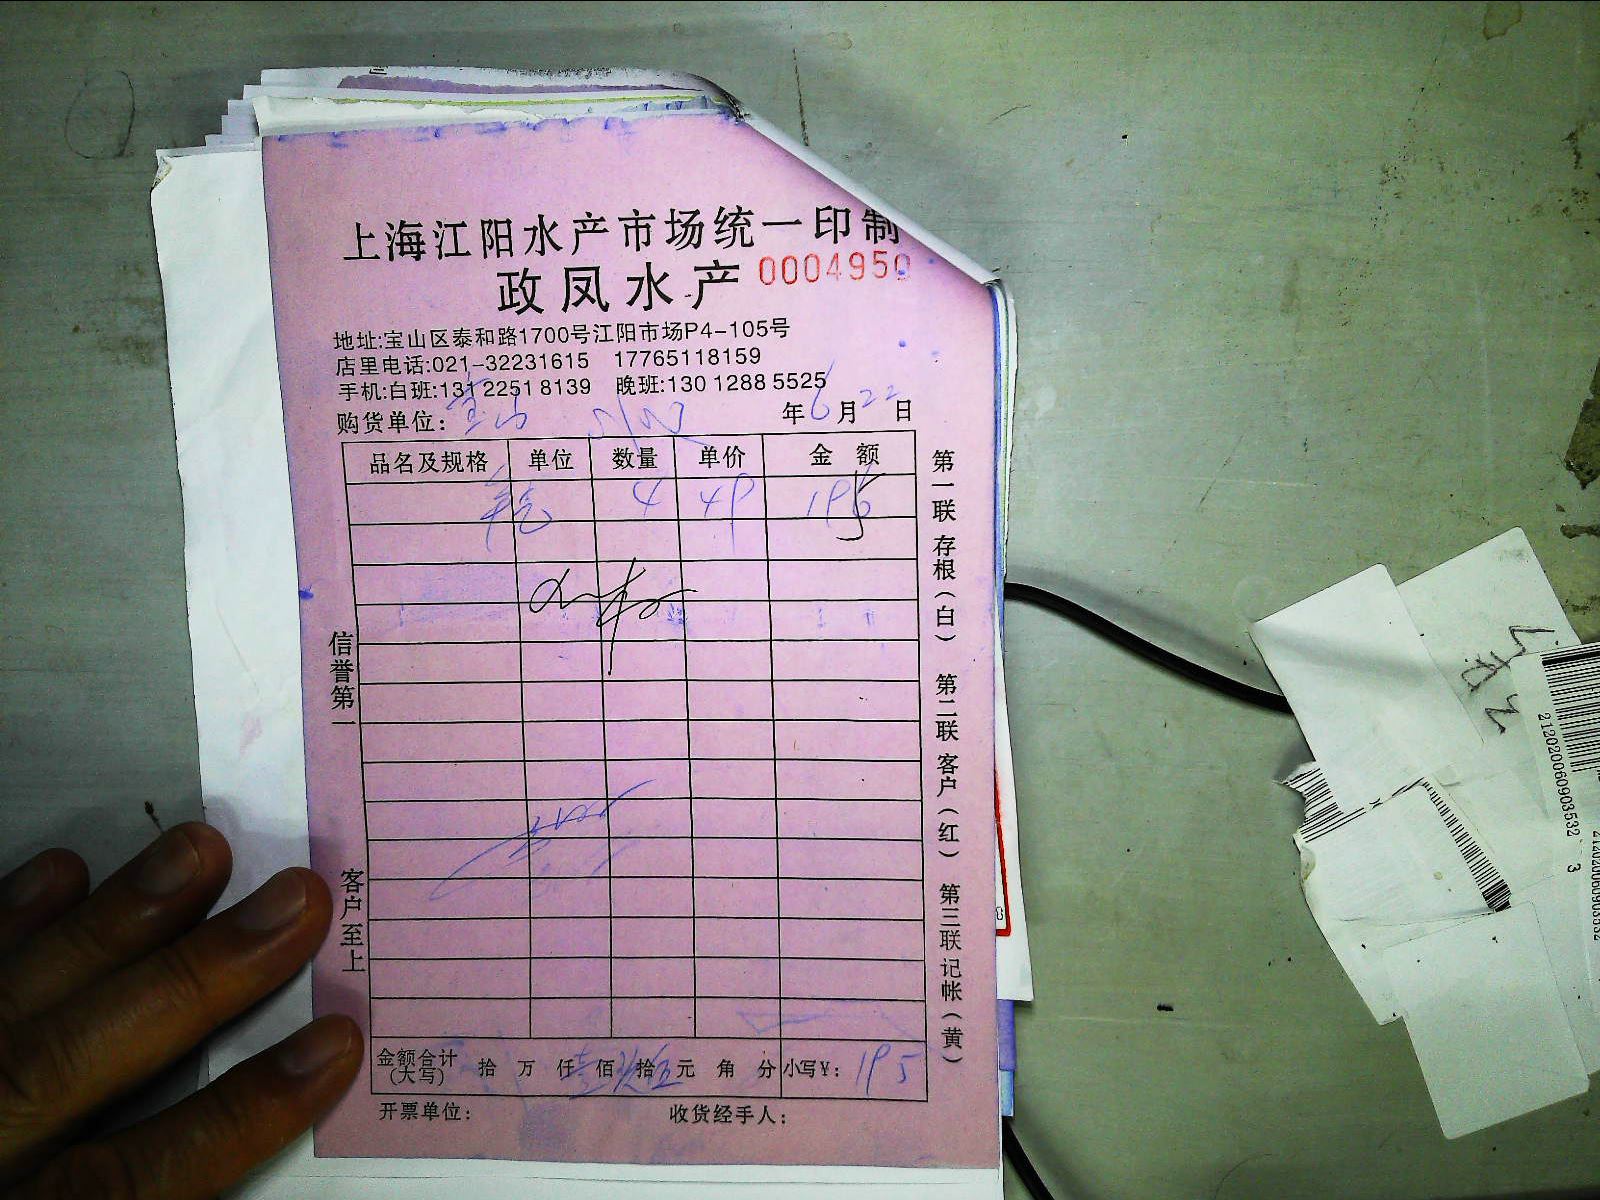 上海江阳水产市场统一印制
政凤水产 000495
地址:宝山区泰和路1700号江阳市场P4-105号
店里电话:021-32231615 17765118159
手机:白班:131 2251 8139 晚班:130 1288 5525
购货单位: 宝山 年6月22日
品名及规格 单位 数量 单价 金额
4 49 195
信誉第一
客户至上
第一联 存根(白) 第二联 客户(红) 第三联 记帐(黄)
金额合计(大写) 拾 万 仟 壹佰 玖拾 伍元 角 分 小写¥: 195
开票单位: 收货经手人:
212020060903532 3